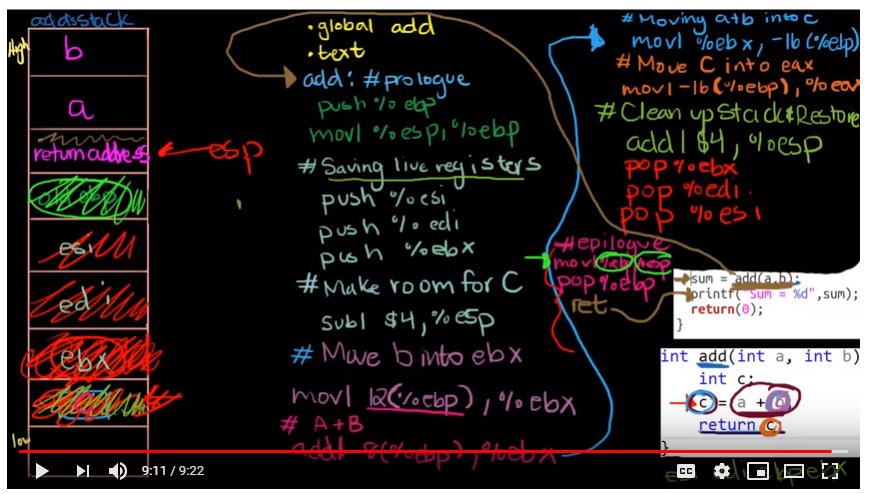 add's stack
High
b
a
return address
esp
esi
edi
ebx
low
.global add
.text
add: #prologue
push %ebp
movl %esp, %ebp
# Saving live registers
push %esi
push %edi
push %ebx
# Make room for C
subl $4, %esp
# Move b into ebx
movl 12(%ebp), %ebx
# A+B
addl 8(%ebp), %ebx
# Moving a+b into c
movl %ebx, -16(%ebp)
# Move C into eax
movl -16(%ebp), %eax
# Clean up Stack & Restore
addl $4, %esp
pop %ebx
pop %edi
pop %esi
#epilogue
movl %ebp %esp
pop %ebp
ret
sum = add(a,b);
printf("Sum = %d",sum);
return(0);
}
int add(int a, int b)
int c;
c = a +
return c
}
9:11 / 9:22
CC